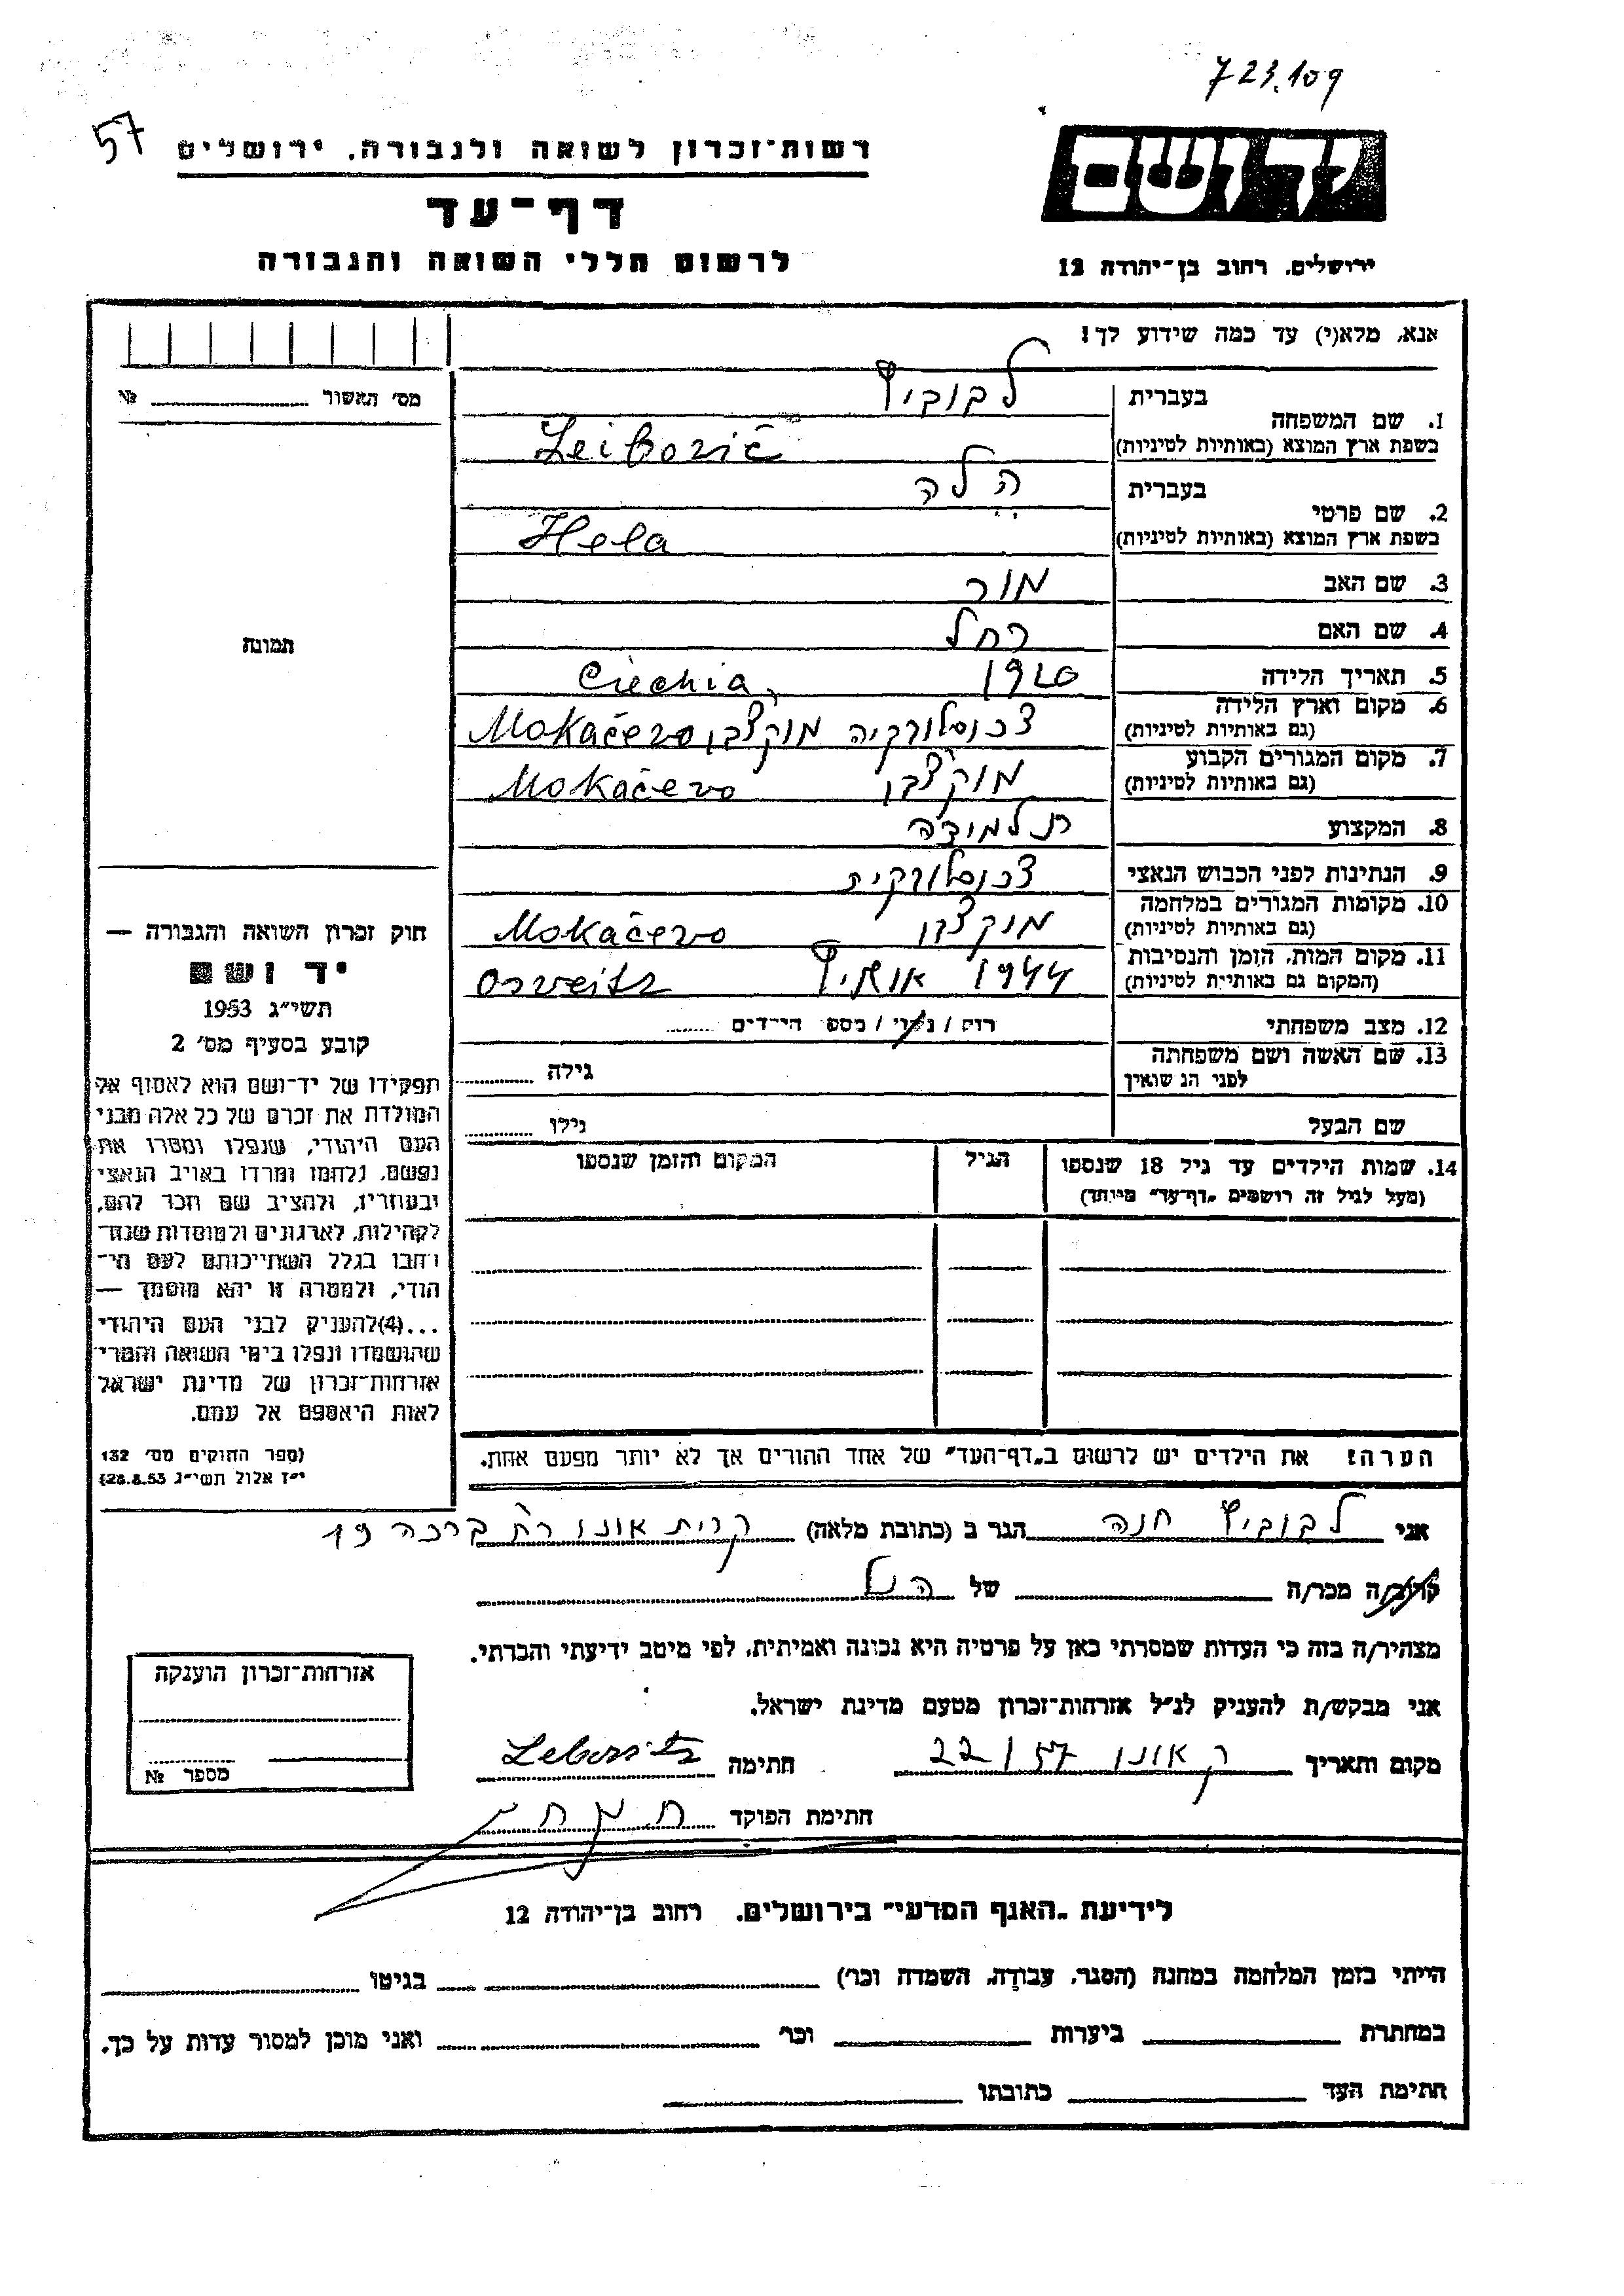 723.109
57
רשות־זכרון לשואה ולגבורה, ירושלים
דף־עד
לרשום חללי השואה והגבורה
יד ושם
ירושלים, רחוב בן־יהודה 12
אנא, מלא(י) עד כמה שידוע לך!
מס' האשור № 
תמונה
1. שם המשפחה
בעברית לבוביץ
בשפת ארץ המוצא (באותיות לטיניות) Leibovič
2. שם פרטי
בעברית הלה
בשפת ארץ המוצא (באותיות לטיניות) Hela
3. שם האב מור
4. שם האם רחל
5. תאריך הלידה 1920 Czechia,
6. מקום וארץ הלידה
(גם באותיות לטיניות) צכוסלורקיה מוקצבו Mokačevo
7. מקום המגורים הקבוע
(גם באותיות לטיניות) מוקצבו Mokačevo
8. המקצוע תלמידה
9. הנתינות לפני הכבוש הנאצי צכוסלורקית
10. מקומות המגורים במלחמה
(גם באותיות לטיניות) מוקצבו Mokačevo
11. מקום המות, הזמן והנסיבות
(המקום גם באותיות לטיניות) 1944 אושויץ Osveitz
12. מצב משפחתי רוק / נשוי / מספר הילדים
13. שם האשה ושם משפחתה
לפני הנשואין גילה
שם הבעל גילו
14. שמות הילדים עד גיל 18 שנספו הגיל המקום והזמן שנספו
(מעל לגיל זה רושמים "דף־עד" מיוחד)
הערה: את הילדים יש לרשום ב"דף־העד" של אחד ההורים אך לא יותר מפעם אחת.
חוק זכרון השואה והגבורה —
יד ושם
תשי״ג 1953
קובע בסעיף מס' 2
תפקידו של יד־ושם הוא לאסוף אל
המולדת את זכרם של כל אלה מבני
העם היהודי, שנפלו ומסרו את
נפשם, נלחמו ומרדו באויב הנאצי
ובעוזריו, ולהציב שם וזכר להם,
לקהילות, לארגונים ולמוסדות שנח־
רבו בגלל השתייכותם לעם הי־
הודי, ולמטרה זו יהא מוסמך —
...(4) להעניק לבני העם היהודי
שהושמדו ונפלו בימי השואה והמרי
אזרחות־זכרון של מדינת ישראל
לאות היאספם אל עמם.
(ספר החוקים מס' 132
י״ז אלול תשי״ג 28.8.53)
אני לבוביץ חנה הגר ב (כתובת מלאה) קרית אונו רח ברכה 19
קרוב/ה מכר/ה של הנ"ל
מצהיר/ה בזה כי העדות שמסרתי כאן על פרטיה היא נכונה ואמיתית, לפי מיטב ידיעתי והכרתי.
אני מבקש/ת להעניק לנ״ל אזרחות־זכרון מטעם מדינת ישראל.
מקום ותאריך ק אונו 22/57 חתימה Lebovitz
חתימת הפוקד
אזרחות־זכרון הוענקה
מספר №
לידיעת "האגף המדעי" בירושלים, רחוב בן־יהודה 12
הייתי בזמן המלחמה במחנה (הסגר, עבודה, השמדה וכו') בגיטו
במחתרת ביערות וכו' ואני מוכן למסור עדות על כך.
חתימת העד כתובתו